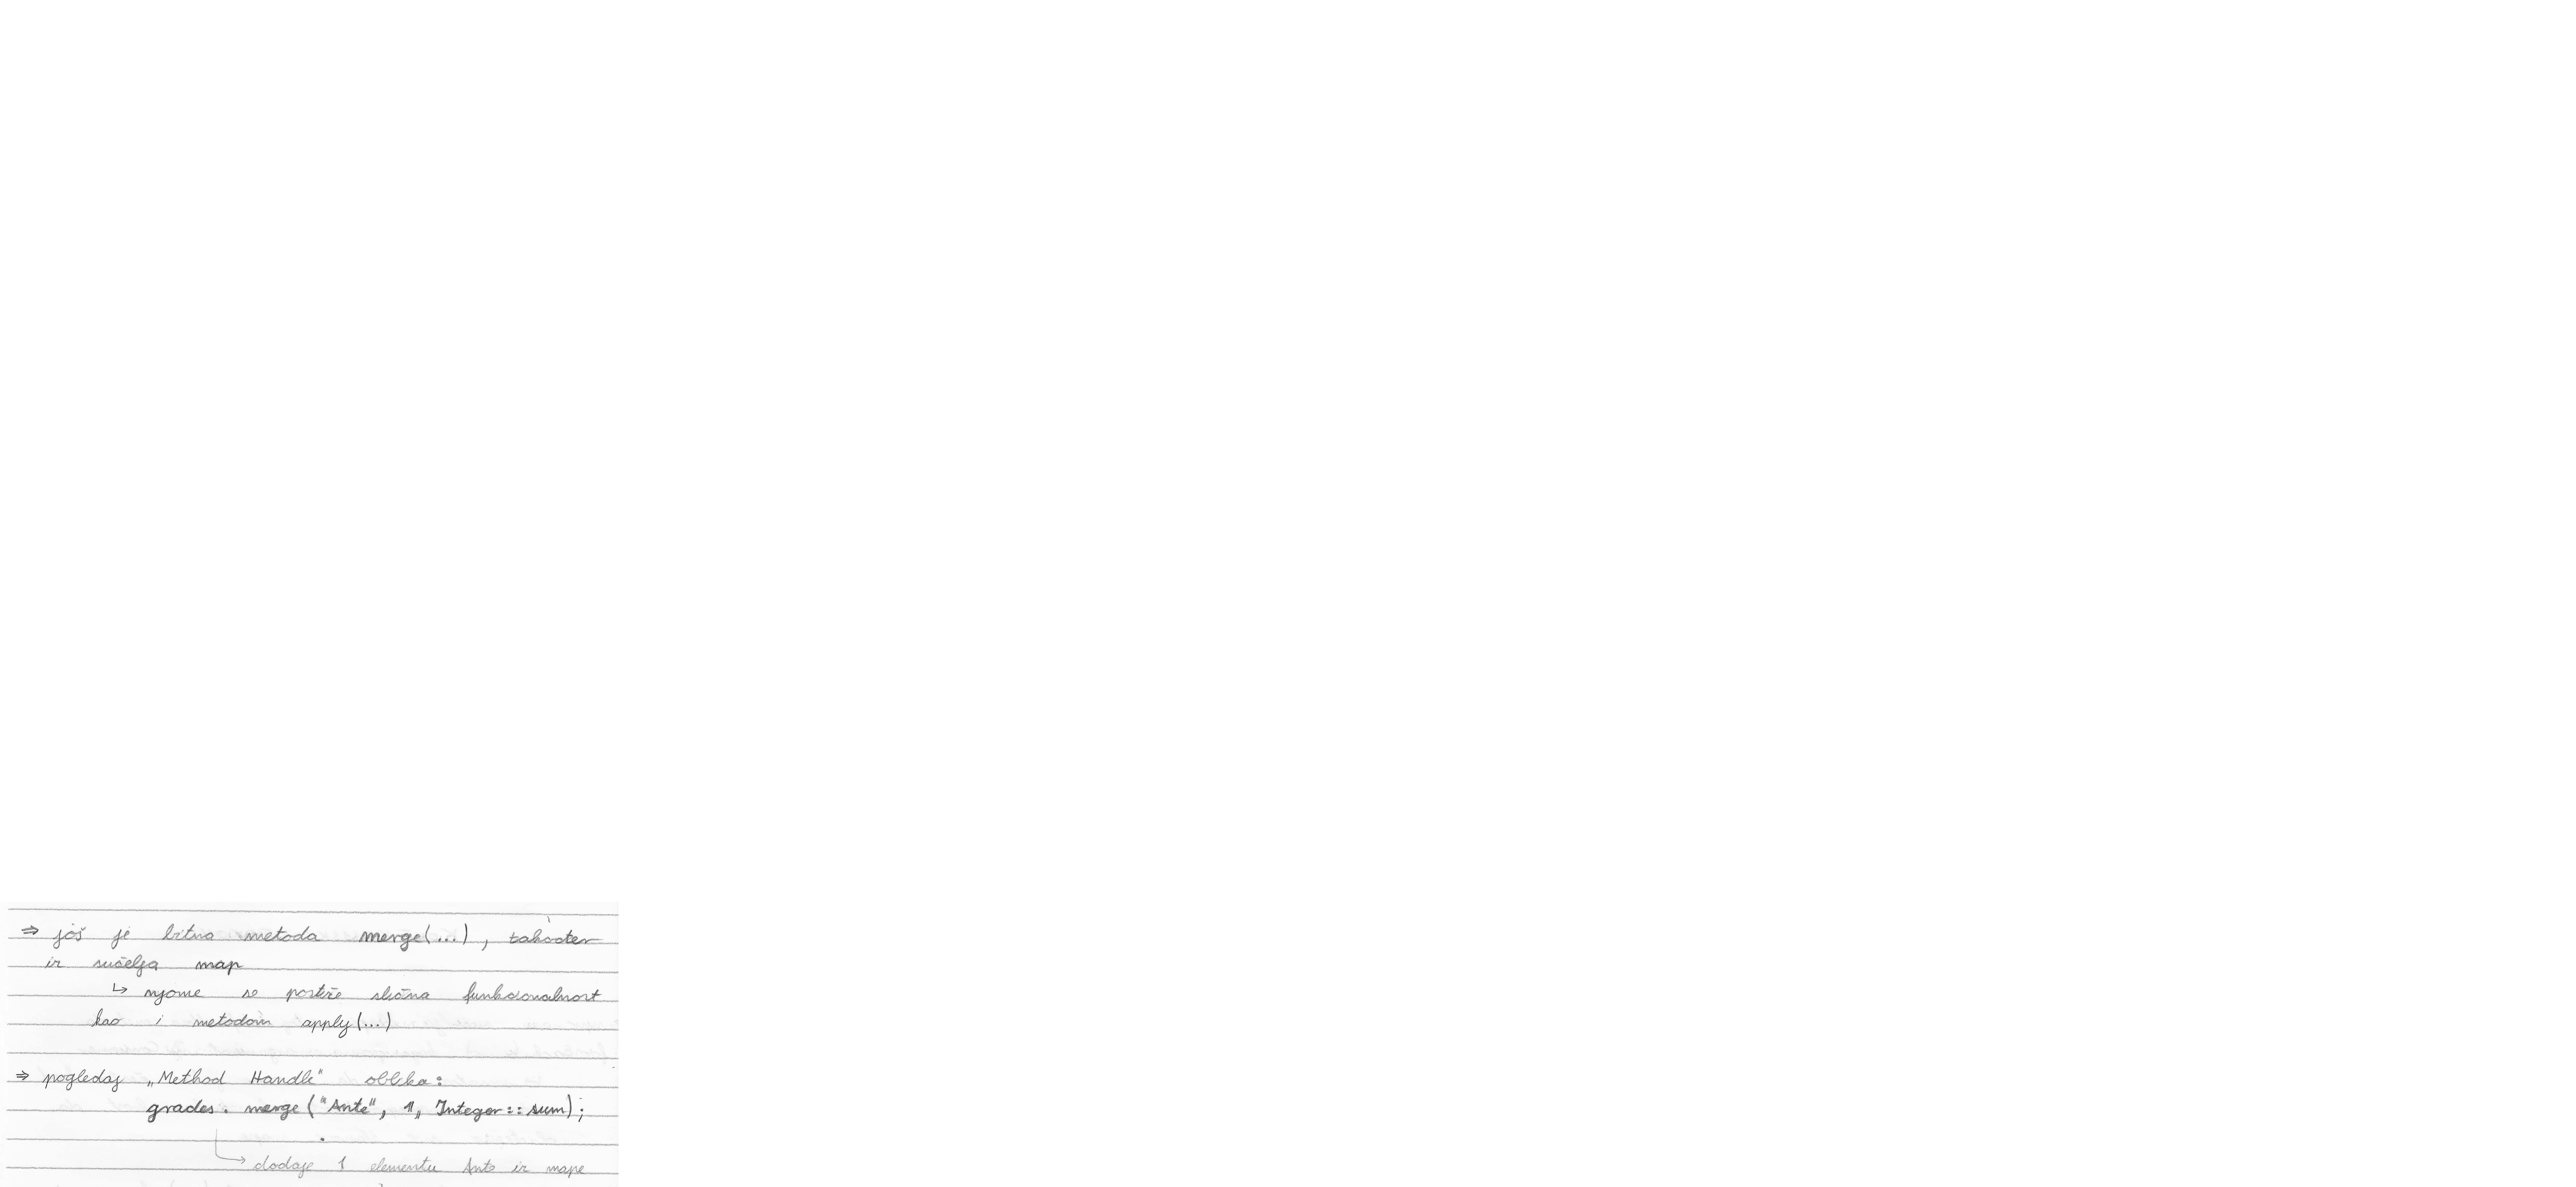 ⇒ još je bitna metoda merge(...), također
iz sučelja map
↳ njome se postiže slična funkcionalnost
kao i metodom apply(...)
⇒ pogledaj „Method Handle" oblika:
grades.merge("Ante", 1, Integer::sum);
↳ dodaje 1 elementu Ante iz mape